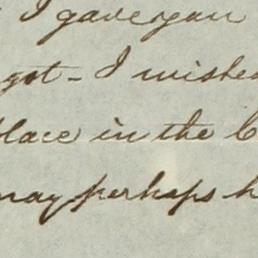 I gave you
got - I wished
place in the
may perhaps h